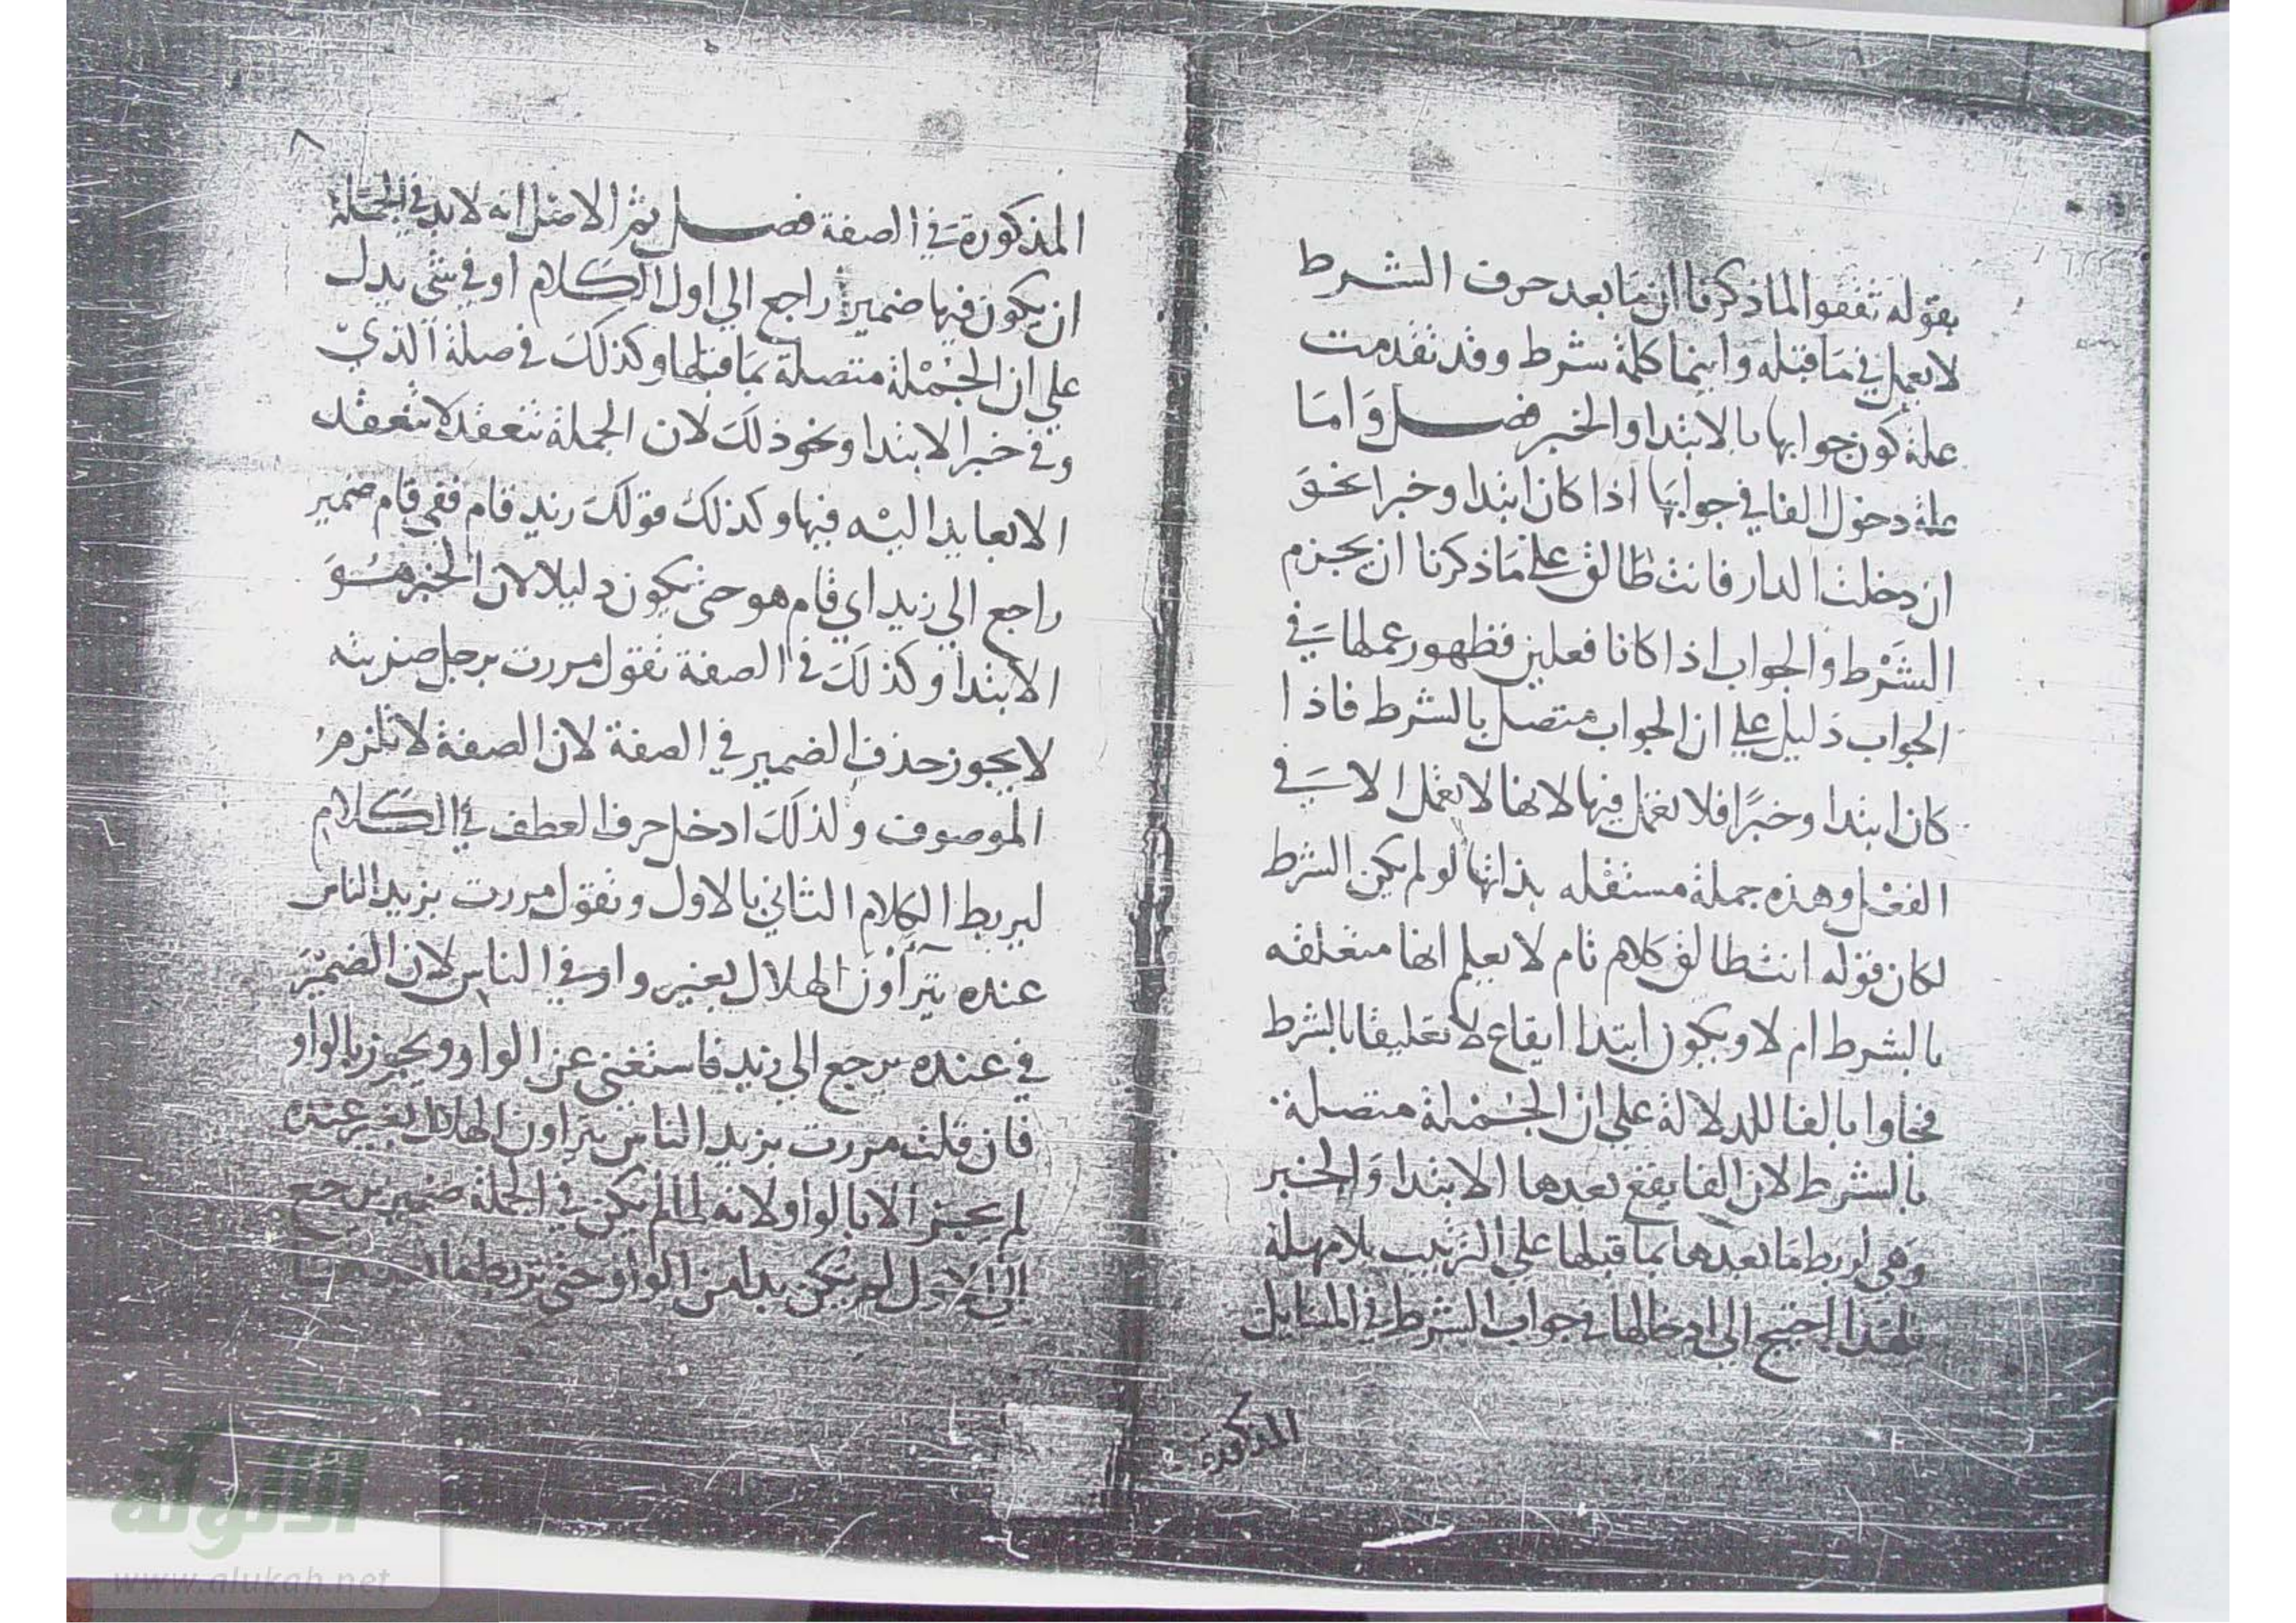 بقوله ثقفوا لما ذكرنا ان ما بعد حرف الشرط
لا يعمل في ما قبله واينما كلمة شرط وقد تقدمت
علة كون جوابها بالابتدا والخبر فصل واما
علة دخول الفا في جوابها اذا كان ابتدا وخبرا نحو
ان دخلت الدار فانت طالق على ما ذكرنا ان يجزم
الشرط والجواب اذا كانا فعلين فظهور عملها في
الجواب دليل على ان الجواب متصل بالشرط فاذا
كان ابتدا وخبرا فلا تعمل فيها لانها لا تعمل الا في
الفعل وهذه جملة مستقله بذاتها لو لم يكن الشرط
لكان قوله انت طالق كلام تام لا يعلم انها متعلقه
بالشرط ام لا ويكون ابتدا ايقاع لا تعليقا بالشرط
فجاوا بالفا للدلالة على ان الجملة متصلة
بالشرط لان الفا يقع بعدها الابتدا والخبر
وهي لربط ما بعدها بما قبلها على الترتيب بلا مهلة
فلهذا احتيج الى ادخالها في جواب الشرط في المسايل
المذكورة
٨
المذكورة في الصفة فصل ثم الاصل انه لا بد في الجملة
ان يكون فيها ضميرا راجع الي اول الكلام او في شي يدل
علي ان الجملة متصلة بما قبلها وكذلك في صلة الذي
وفي خبر الابتدا ونحو ذلك لان الجملة تنعقد لا تنعقد
الا بعايد اليه فيها وكذلك قولك زيد قام ففي قام ضمير
راجع الي زيد اي قام هو حتى يكون دليلا لان الخبر هو
الابتدا وكذلك في الصفة تقول مررت برجل ضربته
لا يجوز حذف الضمير في الصفة لان الصفة لا تلزم
الموصوف ولذلك ادخل حرف العطف في الكلام
ليربط الكلام الثاني بالاول وتقول مررت بزيد الناس
عنده يترآأون الهلال بغير واو في الناس لان الضمير
في عنده يرجع الي زيد فاستغني عن الواو ويجوز بالواو
فان قلت مررت بزيد الناس يتراون الهلال بغير عنده
لم يجز الا بالواو لانه لما لم يكن في الجملة ضمير يرجع
الي الاول لم يكن بدا من الواو حتى تربط
الألوكة
www.alukah.net